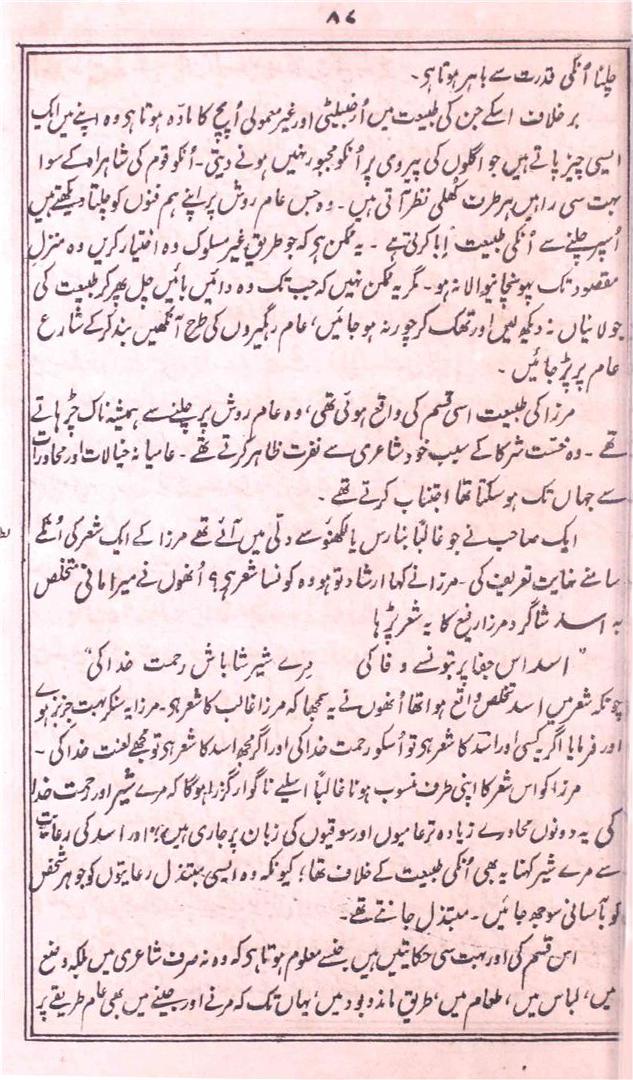 ۸۷
چلنا اُنکی قدرت سے باہر ہوتا ہی۔
برخلاف اسکے جن کی طبیعت میں اُرجنیلیٹی اور غیر معمولی اُپج کا مادّہ ہوتا ہو وہ اپنے میں ایک
ایسی چیز پاتے ہیں جو اگلوں کی پیروی پر اُنکو مجبور نہیں ہونے دیتی۔ اُنکو قوم کی شاہراہ کے سوا
بہت سی راہیں ہر طرف کُھلی نظر آتی ہیں۔ وہ جس عام روش پر اپنے ہم فنوں کو چلتا دیکھتے ہیں
اُسپر چلنے سے اُنکی طبیعت اِبا کرتی ہے۔ یہ ممکن ہی کہ جو طریق غیر مسلوک وہ اختیار کریں وہ منزلِ
مقصود تک پہونچانیوالا نہ ہو۔ مگر یہ ممکن نہیں کہ جب تک وہ دائیں بائیں چل پھر کر طبیعت کی
جولانیاں نہ دیکھ لیں اور تھک کر چور نہ ہو جائیں، عام رہگیروں کی طرح آنکھیں بند کرکے شارع
عام پر پڑ جائیں۔
مرزا کی طبیعت اسی قسم کی واقع ہوئی تھی، وہ عام روش پر چلنے سے ہمیشہ ناک چڑہاتے
تھے۔ وہ خسّت شرکا کے سبب خود شاعری سے نفرت ظاہر کرتے تھے۔ عامیانہ خیالات اور محاورات
سے جہاں تک ہو سکتا تھا اجتناب کرتے تھے۔
ایک صاحب نے جو غالباً بنارس یا لکھنؤ سے دلّی میں آئے تھے مرزا کے ایک شعر کی اُنکے
سامنے نہایت تعریف کی۔ مرزا نے کہا ارشاد تو ہو وہ کونسا شعر ہی؟ اُنھوں نے میر امانی متخلص
بہ اسد شاگرد مرزا رفیع کا یہ شعر پڑہا
"اسد اس جفا پر بتوں سے وفا کی مِرے شیر شاباش رحمت خدا کی"
چونکہ شعر میں اسد تخلص واقع ہوا تھا اُنھوں نے یہ سمجھا کہ مرزا غالب کا شعر ہی۔ مرزا یہ سنکر بہت جزبز ہوے
اور فرمایا اگر یہ کسی اور اسد کا شعر ہی تو اُسکو رحمت خدا کی اور اگر مجھ اسد کا شعر ہی تو مجھے لعنت خدا کی۔
مرزا کو اس شعر کا اپنی طرف منسوب ہونا غالباً اسلیے ناگوار گزرا ہوگا کہ مرے شیر اور رحمت خدا
کی یہ دونوں محاورے زیادہ تر عامیوں اور سوقیوں کی زبان پر جاری ہیں؛ اور اسد کی رعایت
سے مرے شیر کہنا یہ بھی اُنکی طبیعت کے خلاف تھا؛ کیونکہ وہ ایسی مبتذل رعایتوں کو جو ہر شخص
کو بآسانی سوجھ جائیں۔ مبتذل جانتے تھے۔
اس قسم کی اور بہت سی حکایتیں ہیں جنسے معلوم ہوتا ہی کہ وہ نہ صرف شاعری میں بلکہ وضع
میں، لباس میں، طعام میں، طریق ماند و بود میں، یہاں تک کہ مرنے اور جینے میں بھی عام طریقے پر